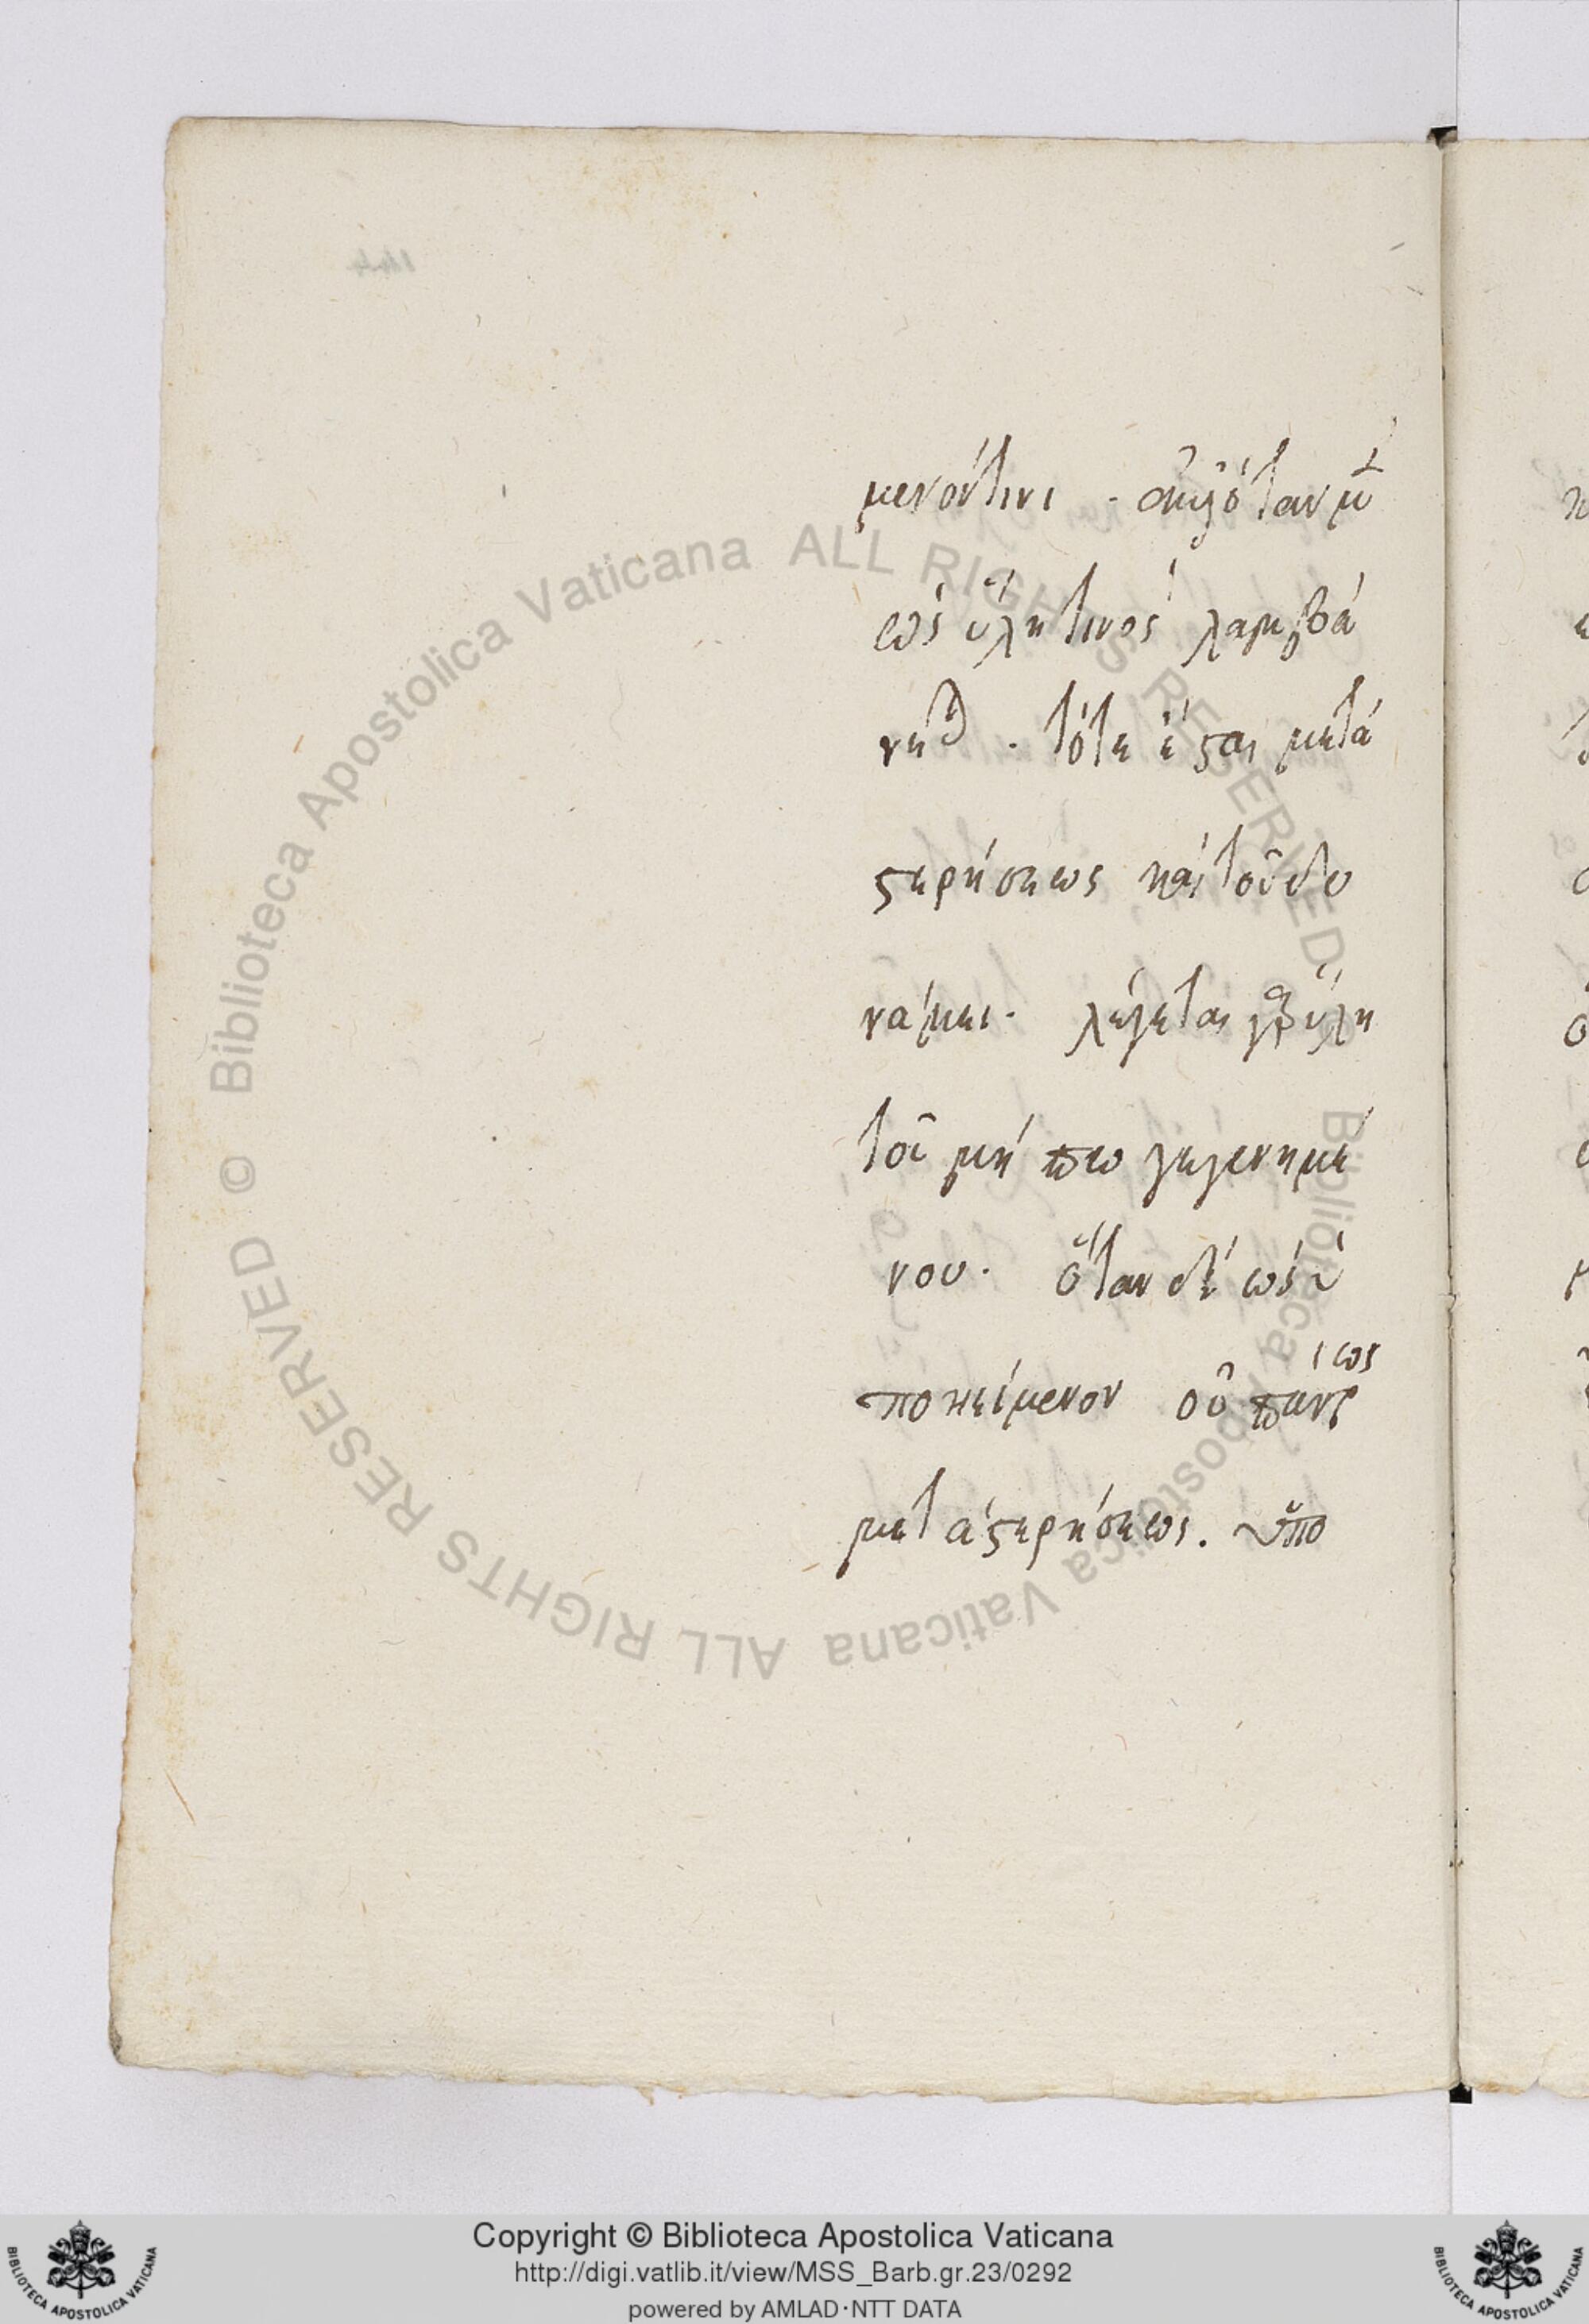 μενόν τινι · ἀλλ' ὅταν μὲν
ὡς ὕλη τινὸς λαμβά
νηται · τότε ἔσται μετὰ
στερήσεως καὶ τοῦ δυ
νάμει · λέγεται γὰρ ὕλη
τοῦ μή πω γεγενημέ
νου · ὅταν δὲ ὡς ὑ
ποκείμενον οὐ πάντως
μετὰ στερήσεως. ὑπο
Biblioteca Apostolica Vaticana ALL RIGHTS RESERVED
Biblioteca Apostolica Vaticana ALL RIGHTS RESERVED ©
Copyright © Biblioteca Apostolica Vaticana
http://digi.vatlib.it/view/MSS_Barb.gr.23/0292
powered by AMLAD·NTT DATA
BIBLIOTECA APOSTOLICA VATICANA
BIBLIOTECA APOSTOLICA VATICANA